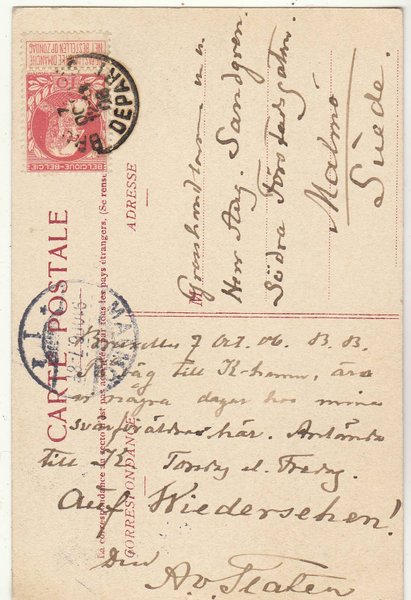 NE PAS LIVRER LE DIMANCHE
NIET BESTELLEN OP ZONDAG
10
BELGIQUE·BELGIE
DEPART
7
OCT
06
CARTE POSTALE
La correspondance au recto n'est pas acceptée par tous les pays étrangers. (Se rens
CORRESPONDANCE
ADRESSE
M
Herr Aug. Sandgren
Södra Förstadsgatan
Malmö
Suède.
MALMÖ
1
Bruxelles 7 Oct. 06. B.B.
På väg till K-hamn, äro
vi några dagar hos mina
svärföräldrar här. Anlända
till K. Torsdg el. Fredg.
Auf Wiedersehen!
Din
A.v. Platen